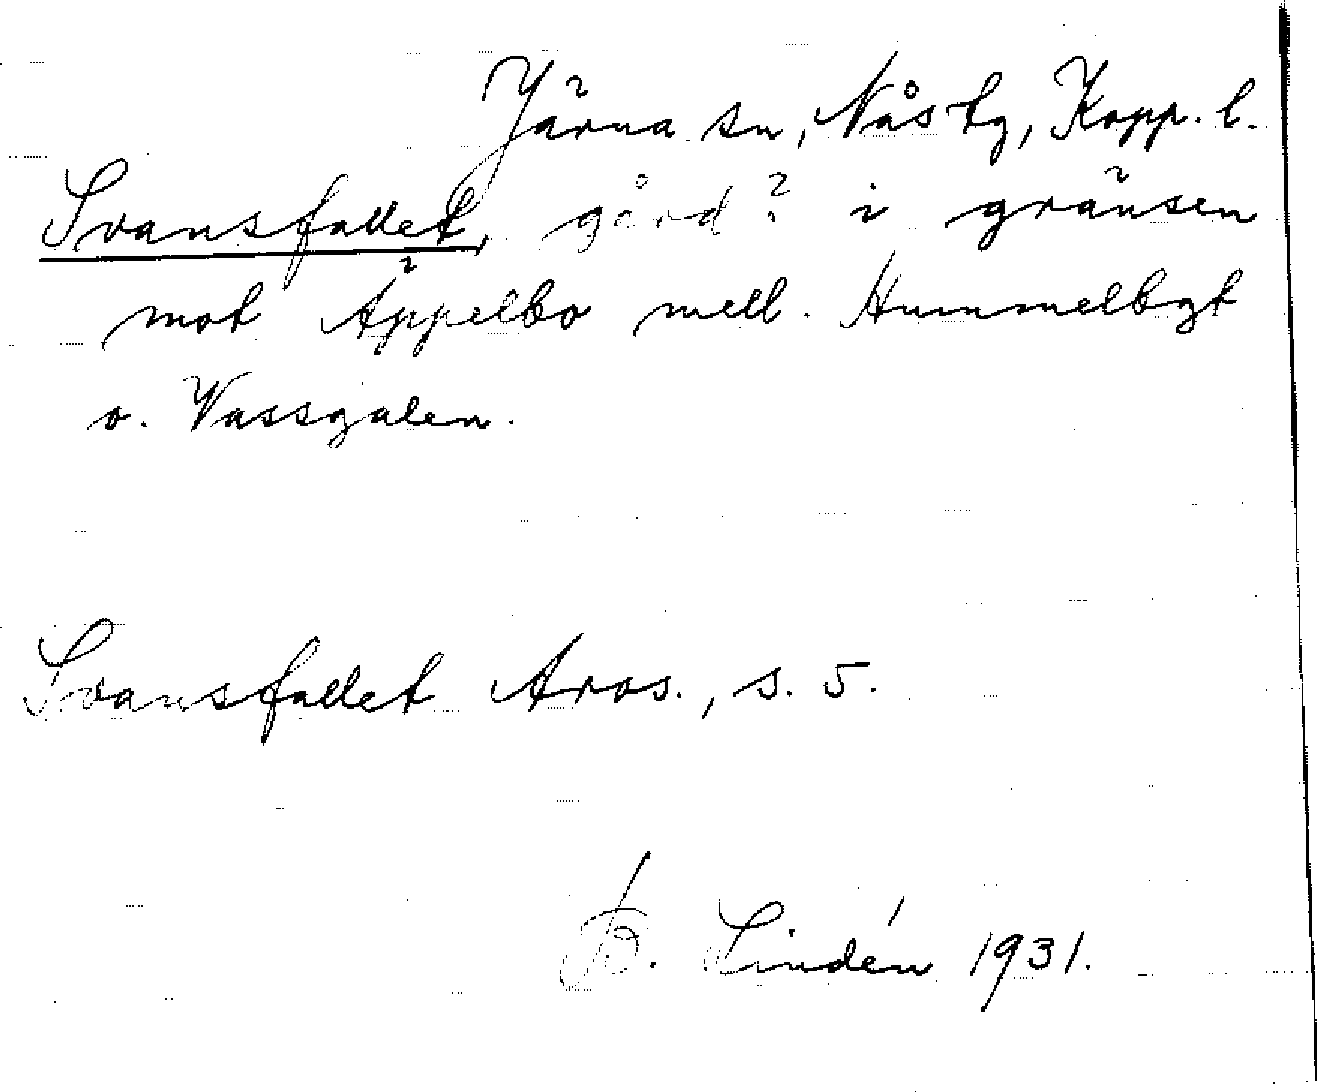 Järna sn, Nås tg, Kopp. l.
Svansfallet, gård? i gränsen
mot Äppelbo mell. Hummelbgt
o. Vassgalen.
Svansfallet Aros., s. 5.
B. Lindén 1931.